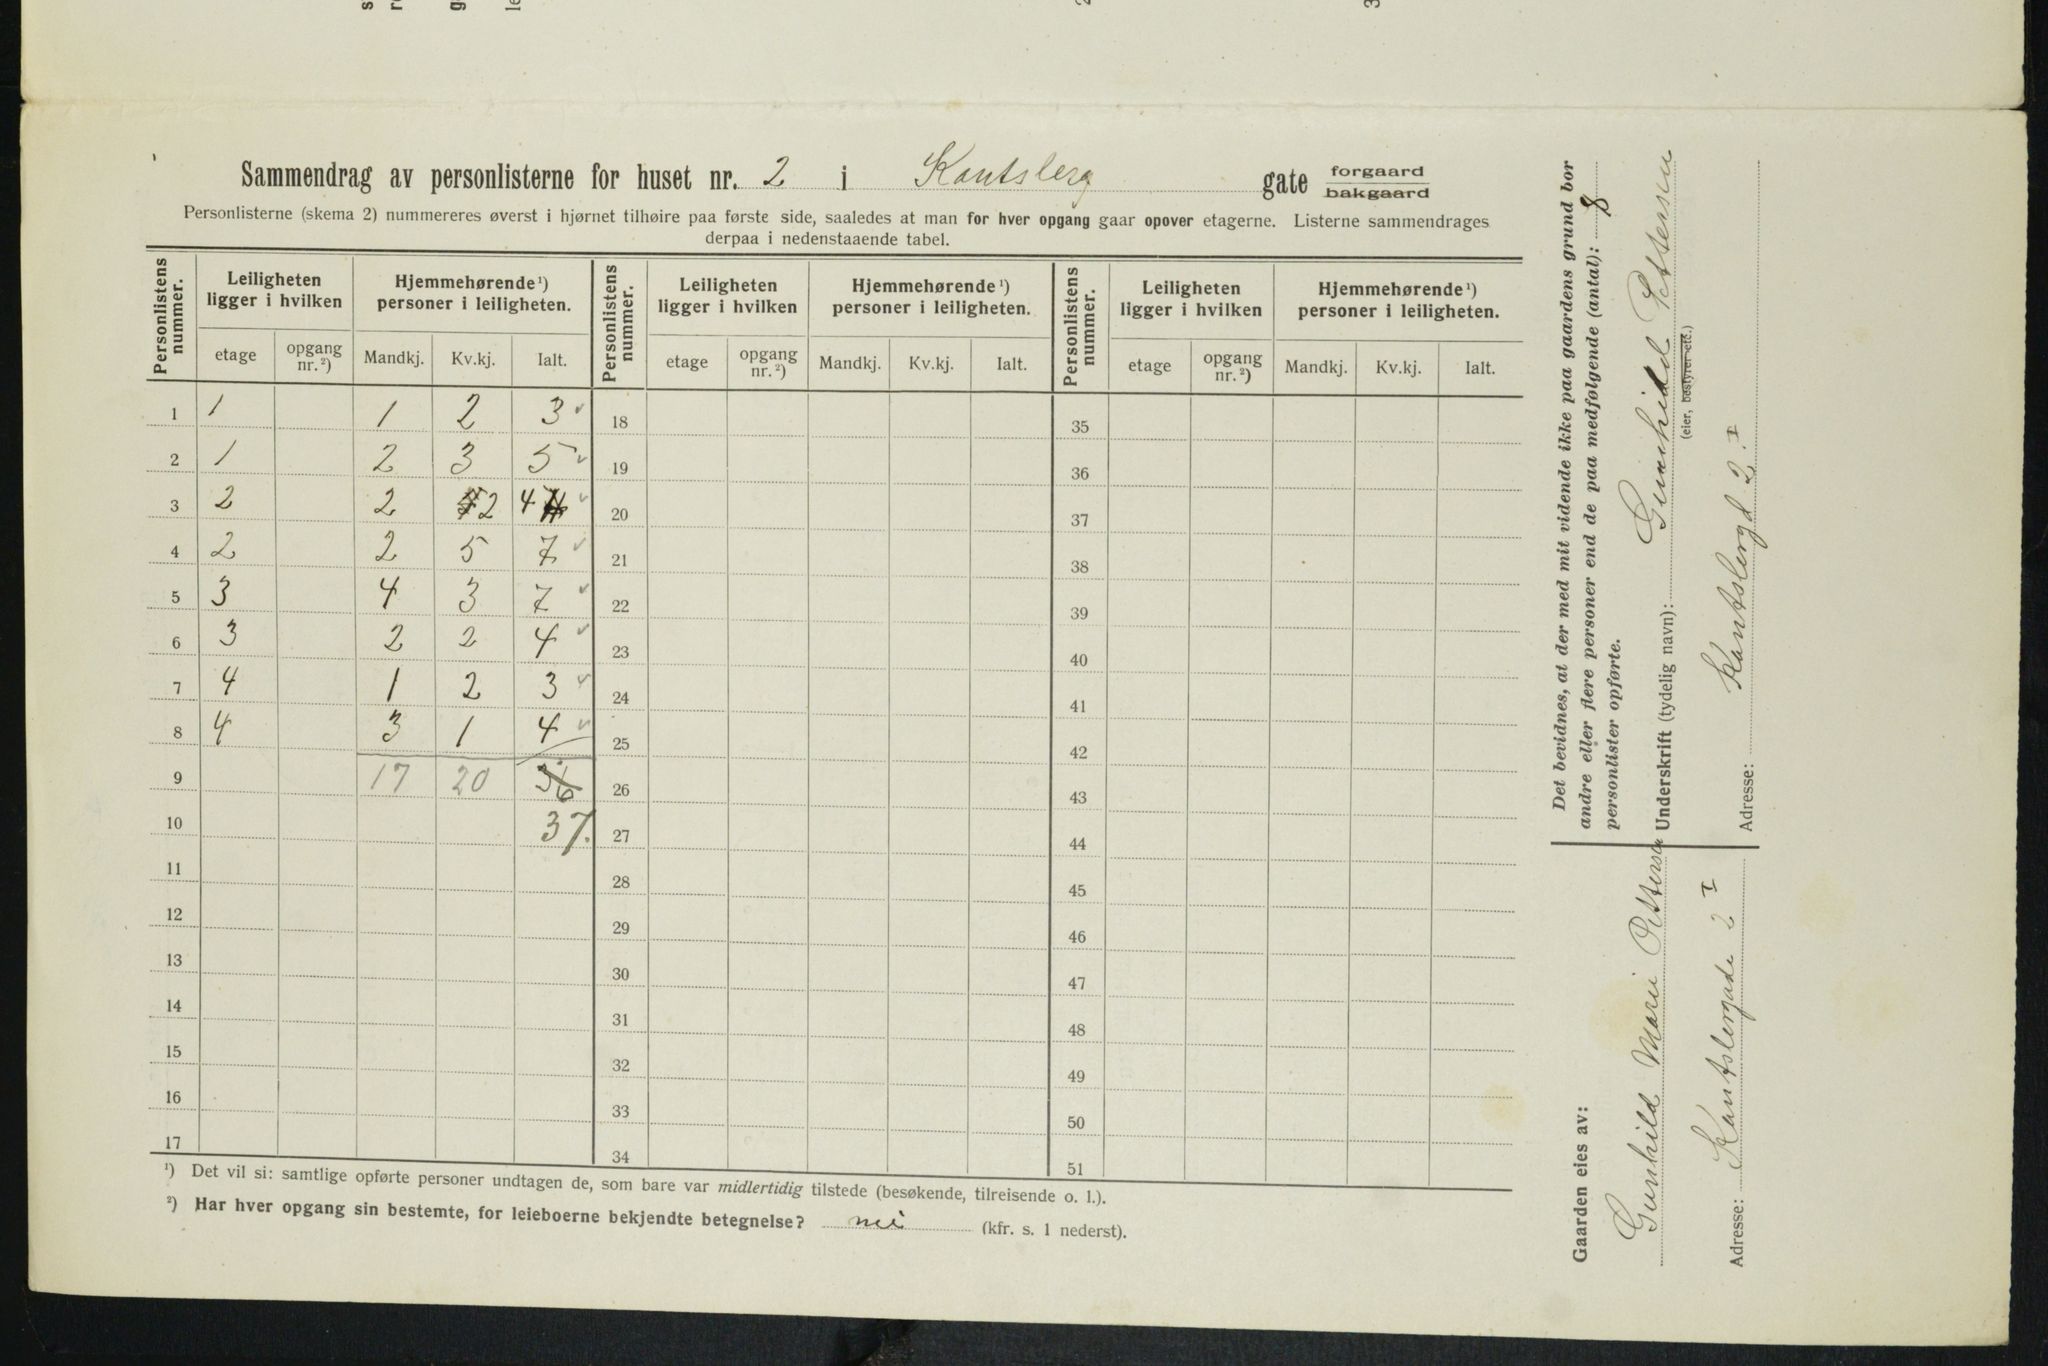 Sammendrag av personlisterne for huset nr. 2 i Kantsberg gate forgaard bakgaard
Personlisterne (skema 2) nummereres øverst i hjørnet tilhøire paa første side, saaledes at man for hver opgang gaar opover etagerne. Listerne sammendrages
derpaa i nedenstaaende tabel.
Personlistens nummer. Leiligheten ligger i hvilken Hjemmehørende ¹) personer i leiligheten. Personlistens nummer. Leiligheten ligger i hvilken Hjemmehørende ¹) personer i leiligheten. Personlistens nummer. Leiligheten ligger i hvilken Hjemmehørende ¹) personer i leiligheten.
etage opgang nr. ²) Mandkj. Kv.kj. Ialt. etage opgang nr. ²) Mandkj. Kv.kj. Ialt. etage opgang nr. ²) Mandkj. Kv.kj. Ialt.
1 1 1 2 3 18 35
2 1 2 3 5 19 36
3 2 2 2 4 20 37
4 2 2 5 7 21 38
5 3 4 3 7 22 39
6 3 2 2 4 23 40
7 4 1 2 3 24 41
8 4 3 1 4 25 42
9 17 20 36 26 43
10 37. 27 44
11 28 45
12 29 46
13 30 47
14 31 48
15 32 49
16 33 50
17 34 51
¹) Det vil si: samtlige opførte personer undtagen de, som bare var midlertidig tilstede (besøkende, tilreisende o. l.).
²) Har hver opgang sin bestemte, for leieboerne bekjendte betegnelse? nei (kfr. s. 1 nederst).
Det bevidnes, at der med mit vidende ikke paa gaardens grund bor
andre eller flere personer end de paa medfølgende (antal): 8
personlister opførte.
Underskrift (tydelig navn): Gunhild Pettersen
(eier, bestyrer etc.)
Adresse: Kantsbergd 2 I
Gaarden eies av:
Gunhild Marie Pettersen
Adresse: Kantsbergade 2 I